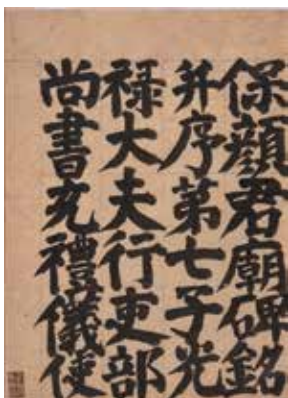 保顔君廟碑銘
并序第七子光
禄大夫行吏部
尚書充禮儀使